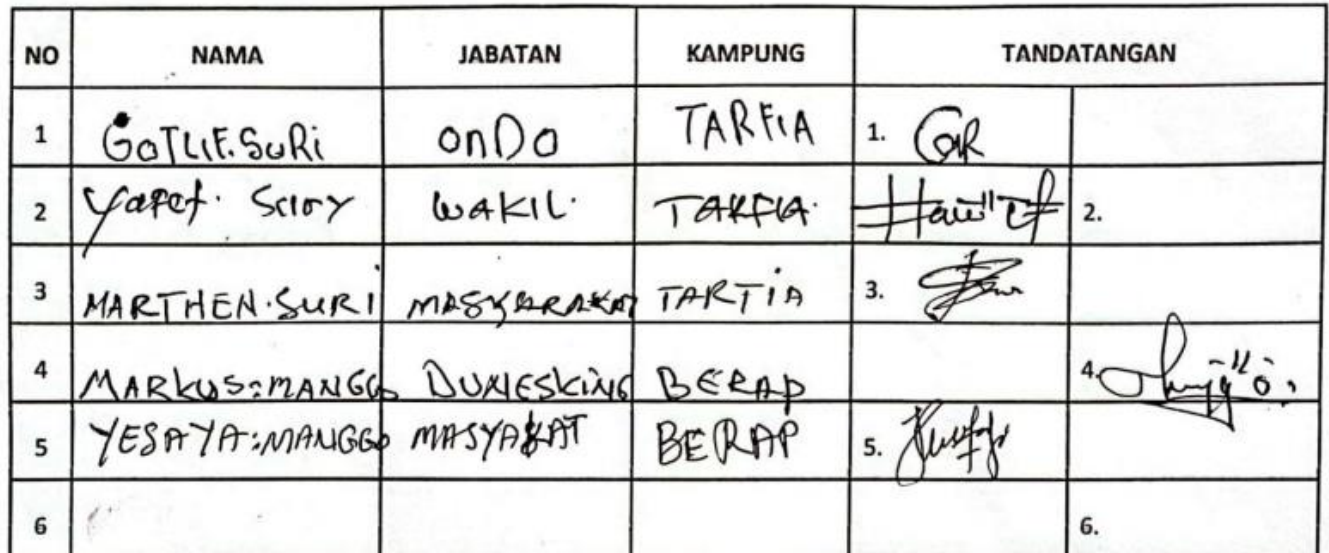 NO NAMA JABATAN KAMPUNG TANDATANGAN
1 GOTLIF.SURI ONDO TARFIA 1.
2 Yafet. WAKIL. TARFIA. 2.
3 MARTHEN.SURI MASYARAKAT TARTIA 3.
4 MARKUS:MANGGO BERAP 4.
5 YESAYA:MANGGO MASYAKAT BERAP 5.
6 6.